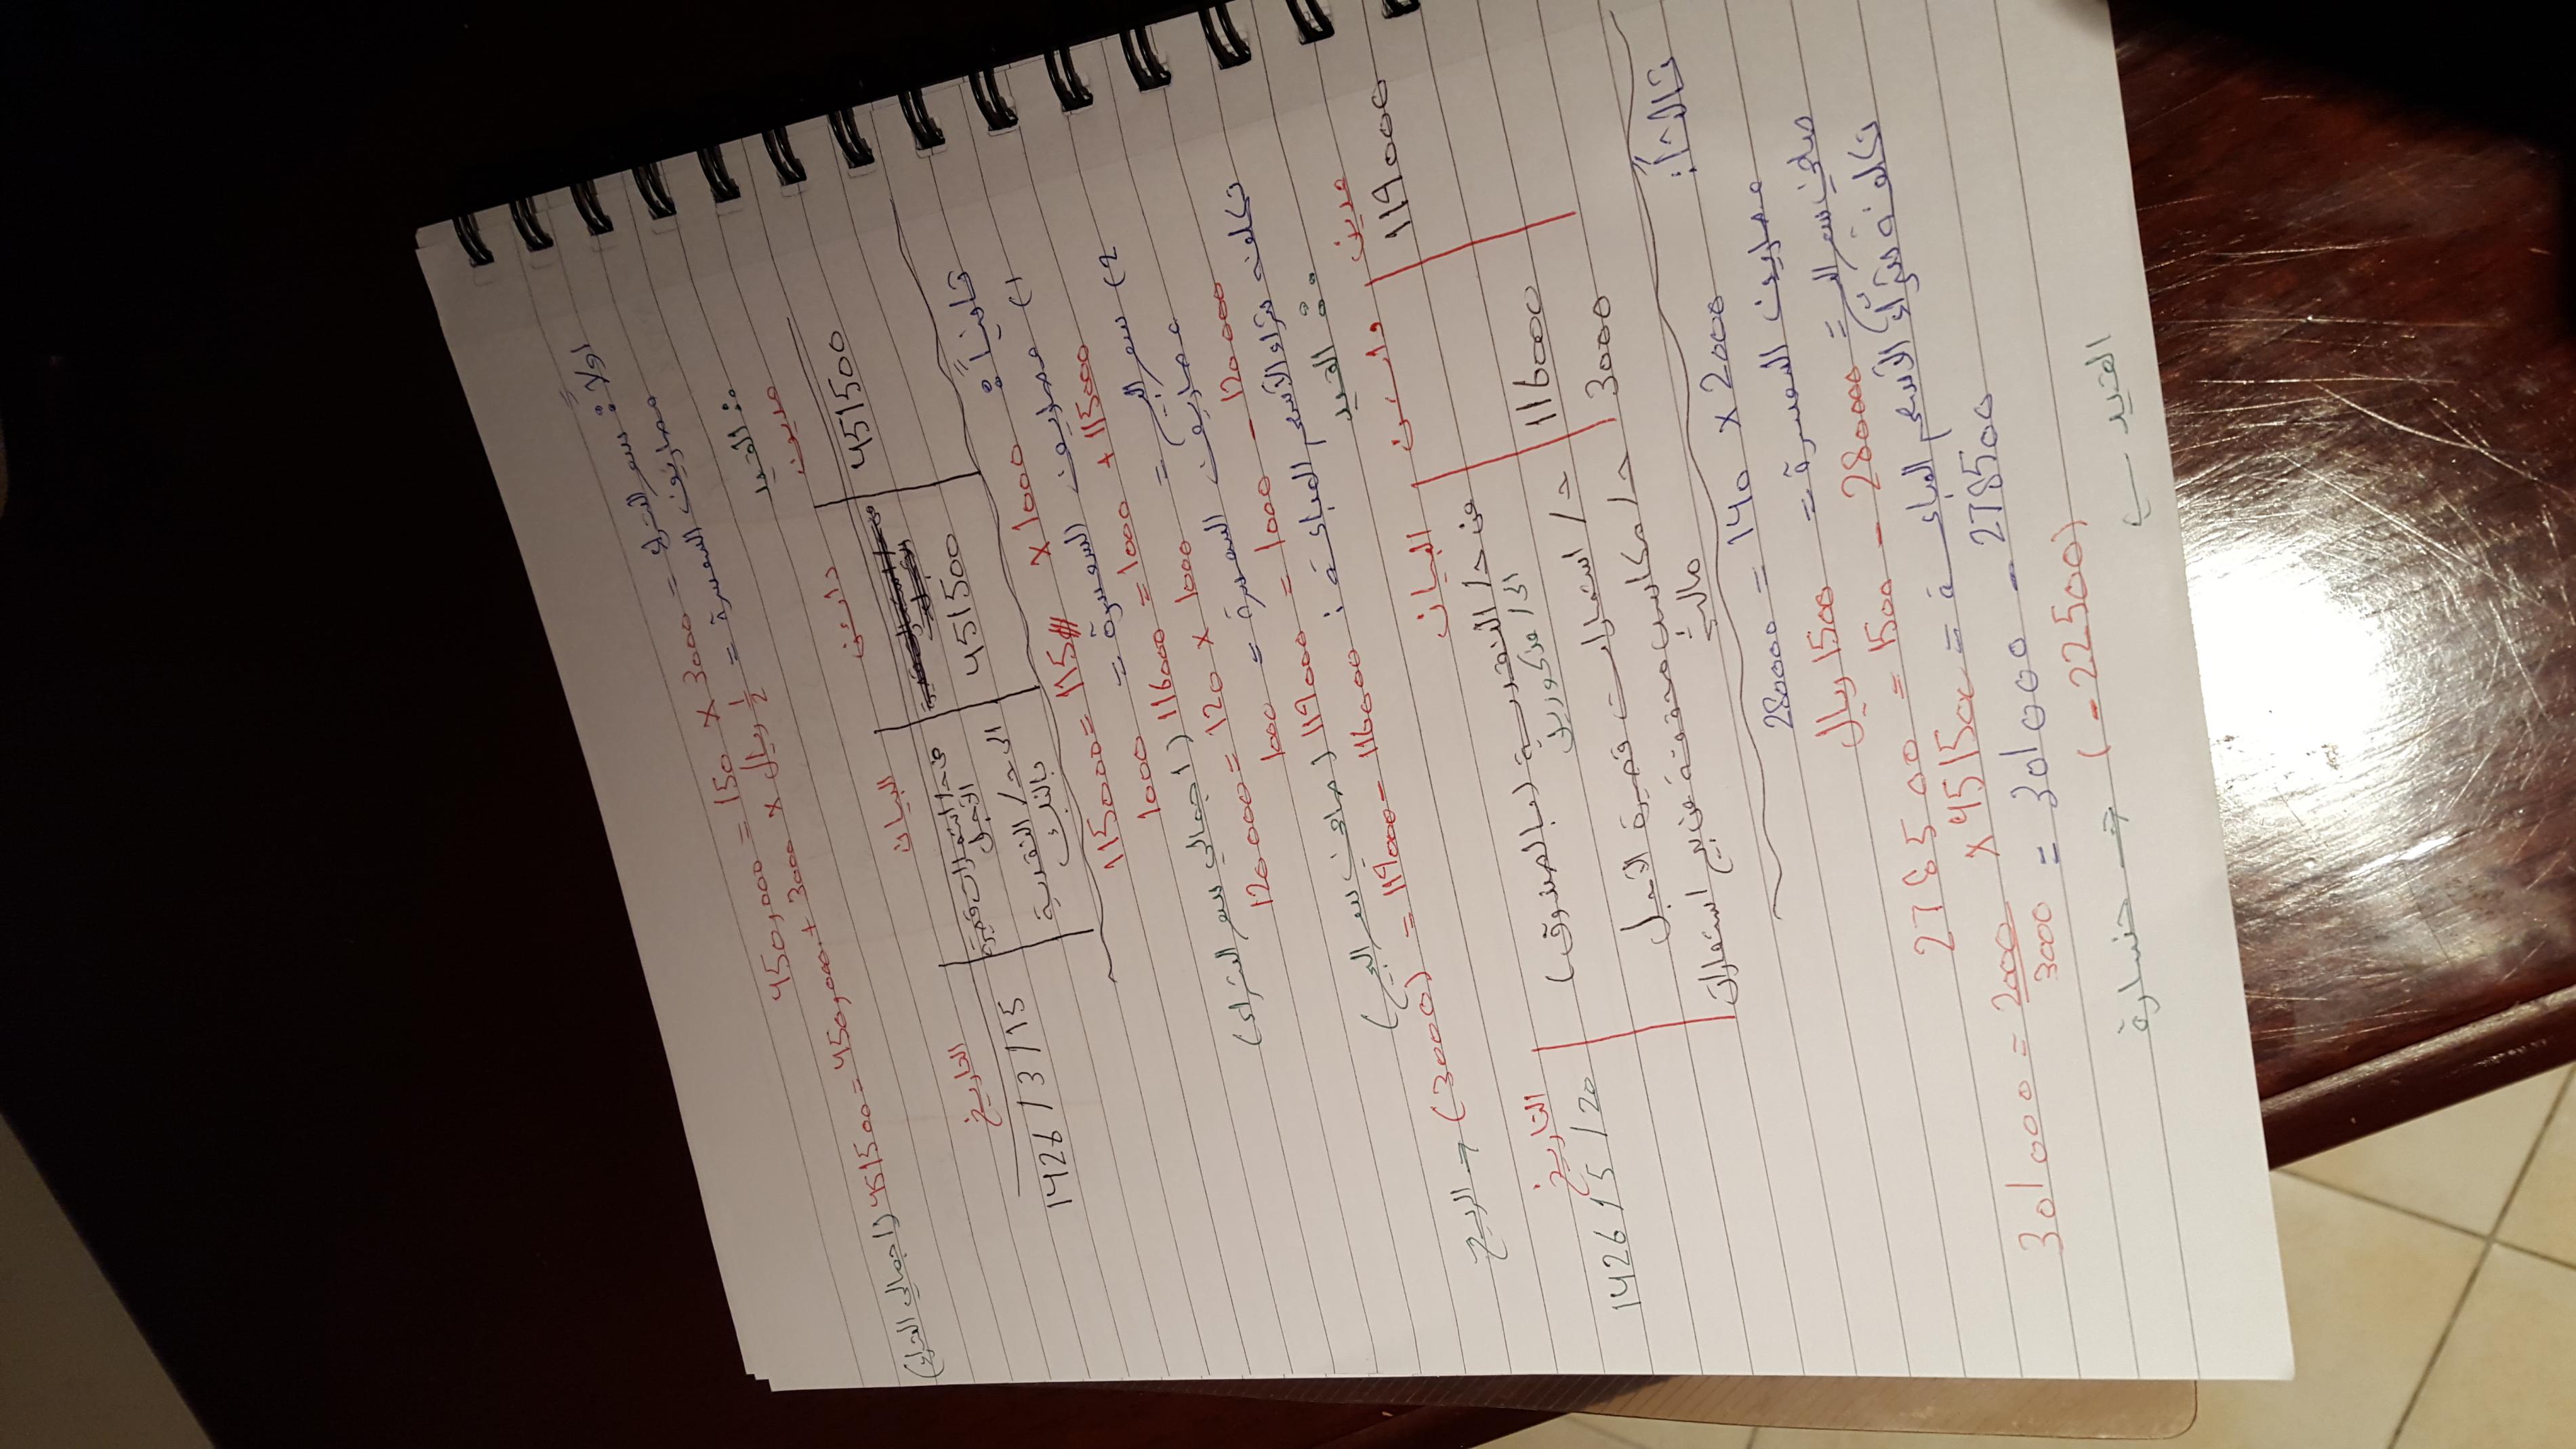 أولاً: سعر الشراء = 3000 × 150 = 450,000
مصاريف السمسرة = ½ ريال × 3000 + 450,000 = 451500 (إجمالي الشراء)
∴ القيد
مدين دائن البيان التاريخ
451500 من حـ/ استثمارات قصيرة الأجل 1426/3/15
451500 الى حـ/ النقدية بالبنك
ثانياً:
1) مصاريف السمسرة = 1000 × 115 = 115000
115000 + 1000 = 116000 (إجمالي سعر الشراء) 1000
2) سعر البيع = 1000 × 120 = 120000
مصاريف السمسرة = 1000
120000 - 1000 = 119000 (صافي سعر البيع)
تكلفة شراء الأسهم المباعة: 116000 - 119000 = (3000) ← الربح
∴ القيد
مدين دائن البيان التاريخ
119000 من حـ/ النقدية (بالصندوق) 1426/5/20
الى مذكورين
116000 حـ/ استثمارات قصيرة الأجل
3000 حـ/ مكاسب محققة عن بيع استثمارات مالية
ثالثاً:
2000 × 140 = 280000
مصاريف السمسرة = 1500 ريال
صافي سعر البيع = 280000 - 1500 = 278500
تكلفة شراء الأسهم المباعة = 451500 × 2000/3000 = 301000
278500 - 301000 = (-22500) ← خسارة
القيد ←